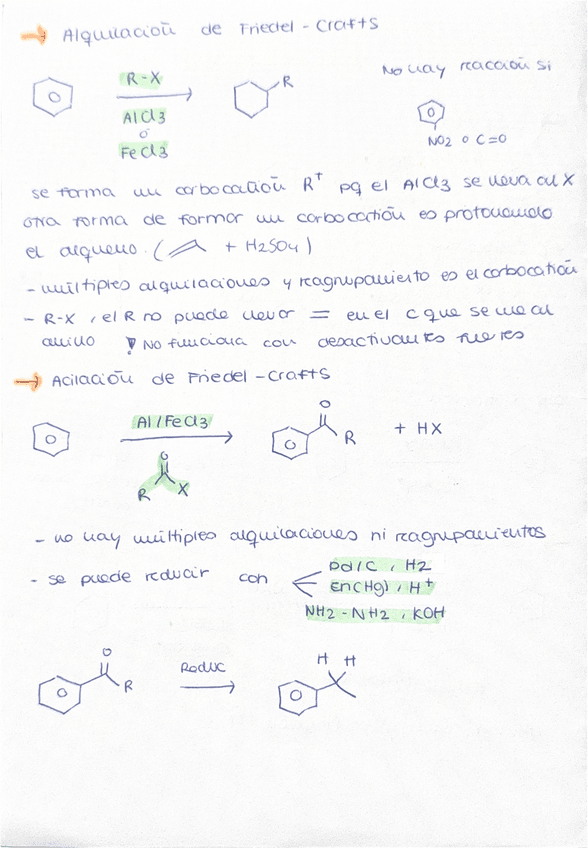 → Alquilación de Friedel-Crafts
R-X
AlCl3
o
FeCl3
R
No hay reacción si
NO2 o C=O
se forma un carbocatión R+ pq el AlCl3 se lleva al X
otra forma de formar un carbocatión es protonando
el alqueno. ( + H2SO4)
- múltiples alquilaciones y reagrupamiento es el carbocatión
- R-X, el R no puede llevar = en el C que se une al
anillo ! No funciona con desactivantes fuertes
→ Acilación de Friedel-Crafts
Al/FeCl3
O
R X
O
R
+ HX
- no hay múltiples alquilaciones ni reagrupamientos
- se puede reducir con
Pd/C, H2
Zn(Hg), H+
NH2-NH2, KOH
O
R
Reduc
H H